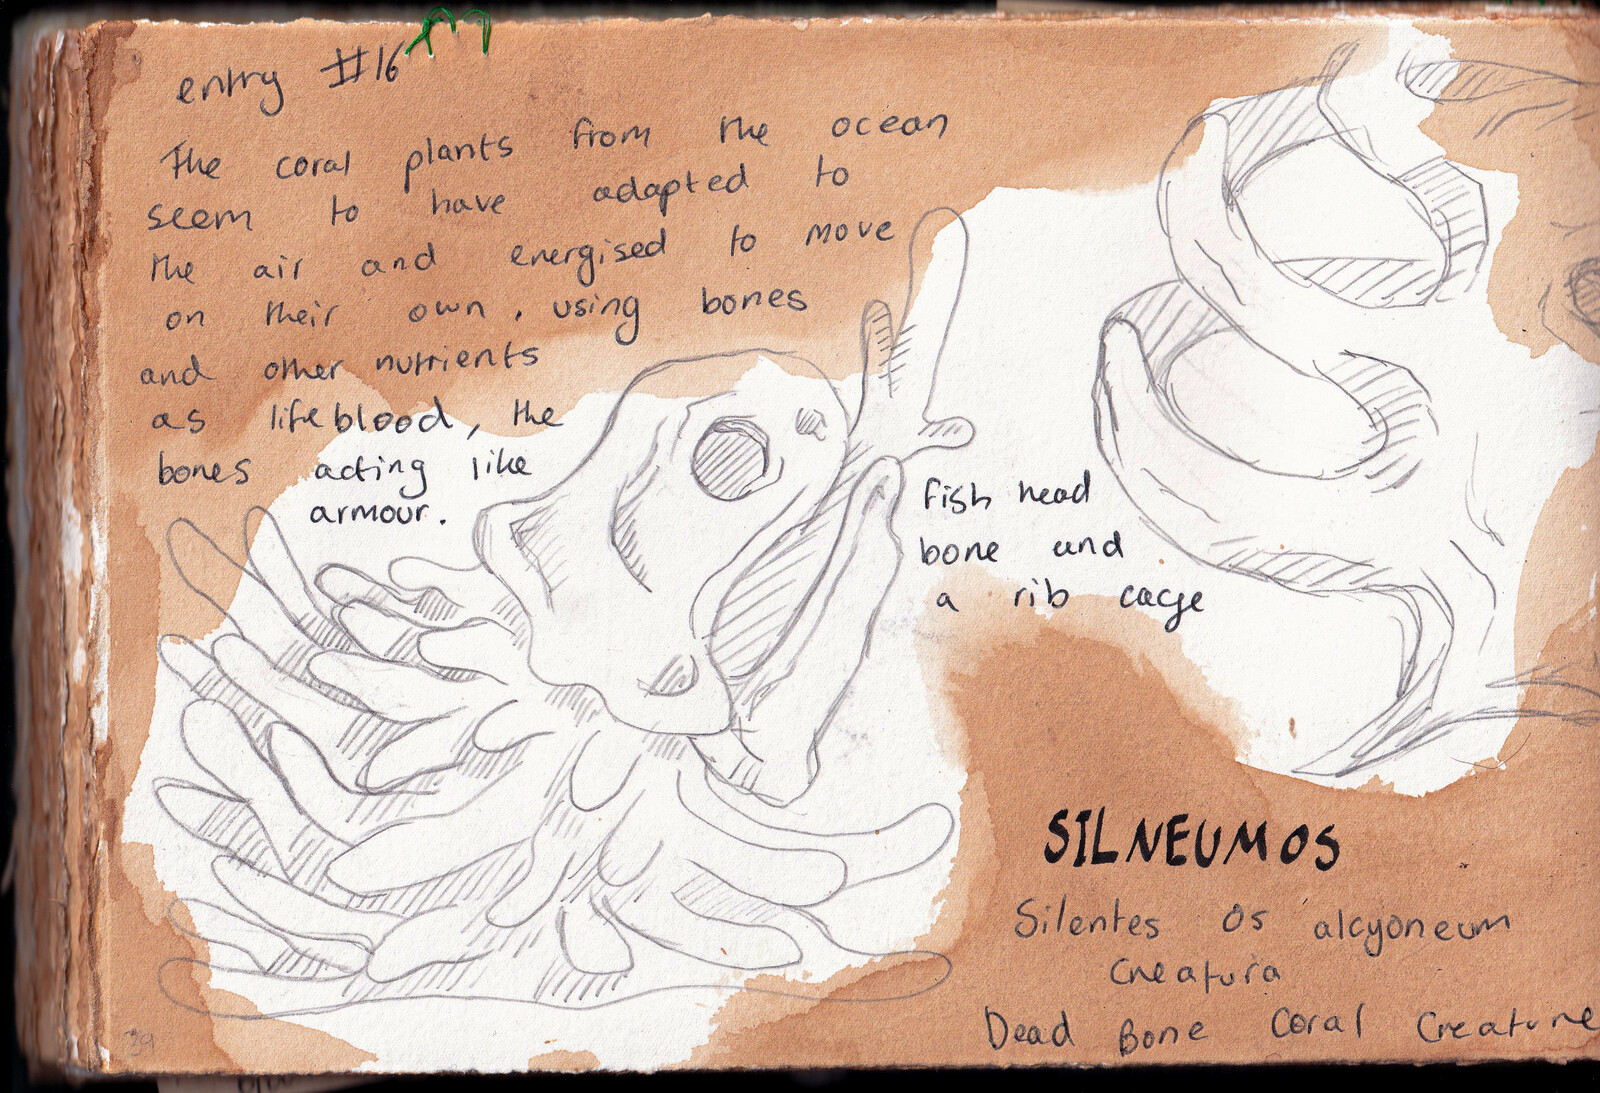 entry #16
The coral plants from the ocean
seem to have adapted to
the air and energised to move
on their own, using bones
and other nutrients
as lifeblood, the
bones acting like
armour.
fish head
bone and
a rib cage
SILNEUMOS
Silentes Os alcyoneum
Creatura
Dead Bone Coral Creature
39